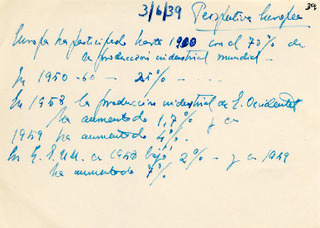 39
3/6/39 Perspectiva Europea
Europa ha participado hasta 1900 con el 70% de
la produccion industrial mundial.
En 1950-60 — 25% — . . . .
En 1958 la produccion industrial de E. Occidental
ha aumentado 1,7% y en
1959 ha aumentado 4%.
En E.E.U.U. en 1958 bajó 2% — y en 1959
ha aumentado 7%